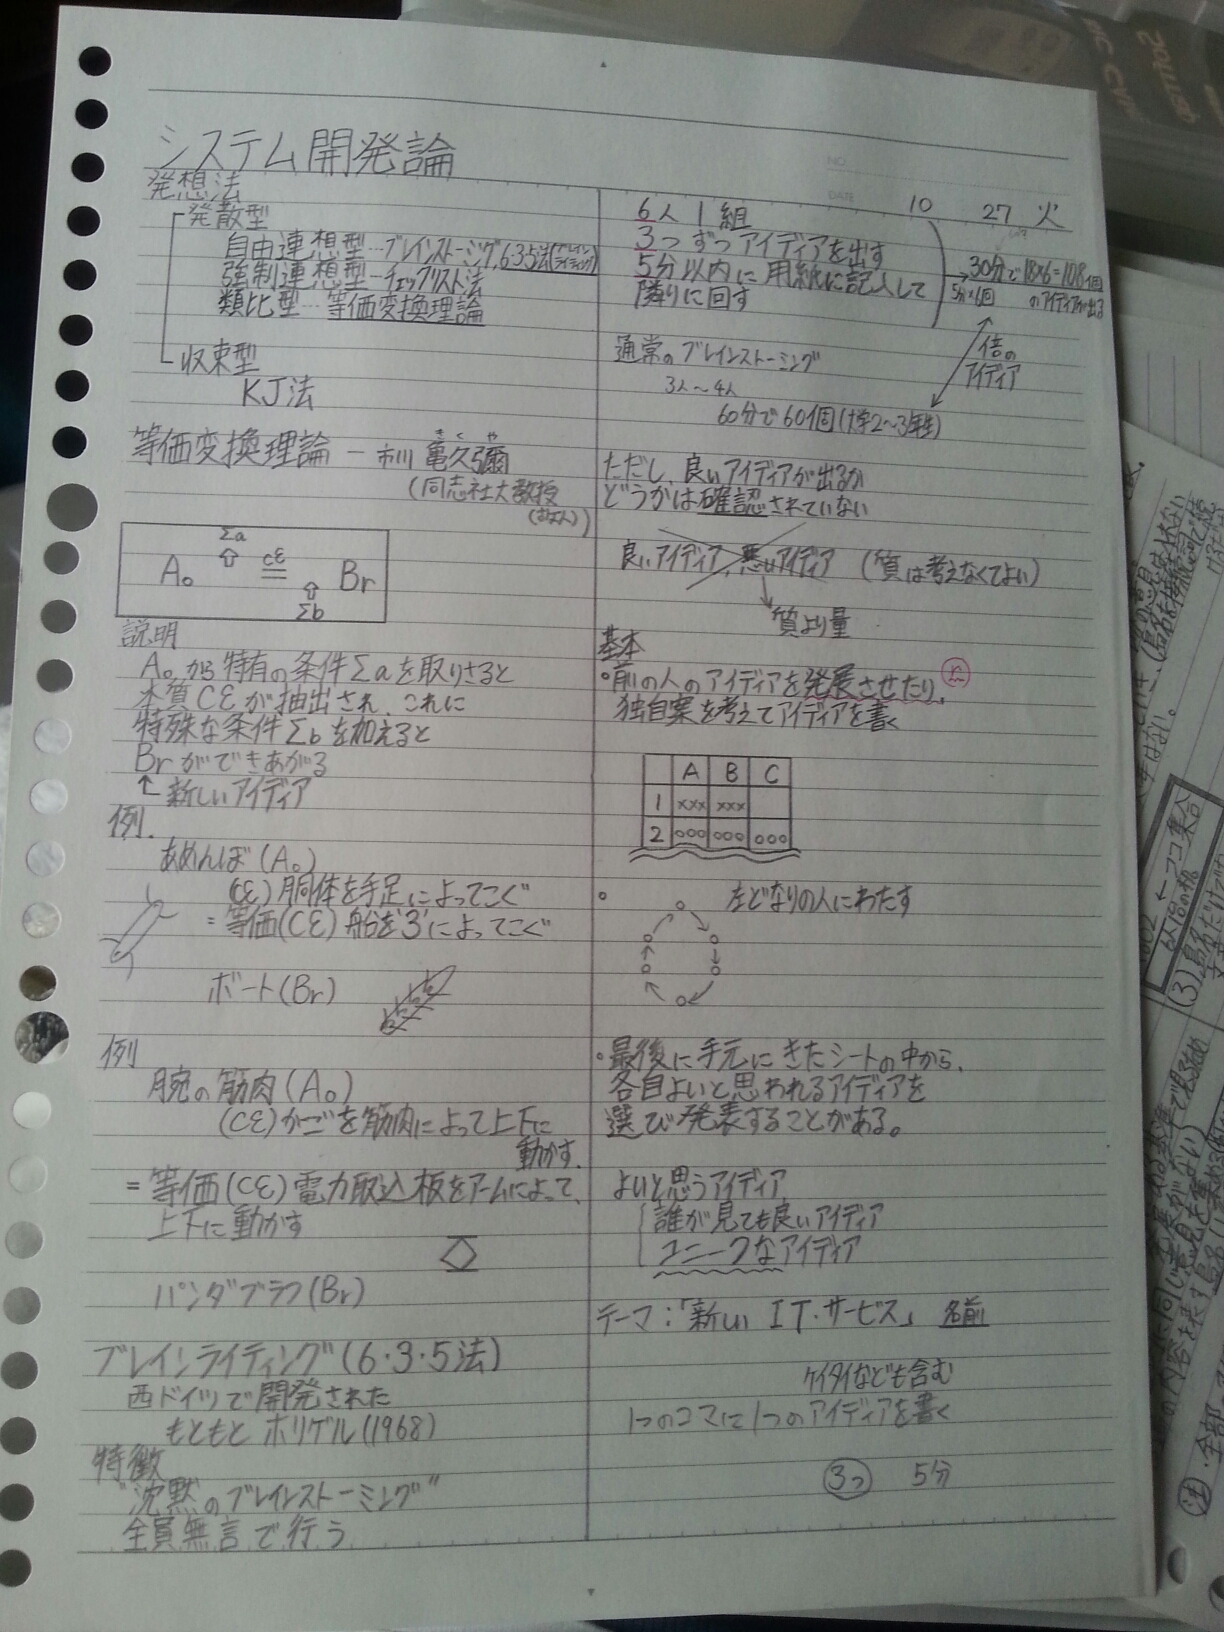 システム開発論
NO.
DATE
10 27 火
発想法
発散型
自由連想型…ブレインストーミング,6・3・5法(ブレインライティング)
強制連想型…チェックリスト法
類比型…等価変換理論
収束型
KJ法
等価変換理論 — 市川 亀久彌
きくや
(同志社大教授
Σa
A₀ cε Br
Σb
説明
A₀から特有の条件Σaを取りさると
本質cεが抽出され、これに
特殊な条件Σbを加えると
Brができあがる
↑ 新しいアイディア
例.
あめんぼ(A₀)
(cε)胴体を手足によってこぐ
=等価(cε)船を"ろ"によってこぐ
ボート(Br)
例
腕の筋肉(A₀)
(cε)かごを筋肉によって上下に
動かす.
=等価(cε)電力取込板をアームによって、
上下に動かす
パンダグラフ(Br)
ブレインライティング(6・3・5法)
西ドイツで開発された
もともと ホリゲル(1968)
特徴
"沈黙のブレインストーミング"
全員無言で行う
6人1組
3つずつアイディアを出す
5分以内に用紙に記入して
隣りに回す
→30分で18×6=108個
5分×6回 のアイディアが出る
倍の
アイディア
通常のブレインストーミング
3人〜4人
60分で60個(大学2〜3年生)
ただし、良いアイディアが出るか
どうかは確認されていない
良いアイディア,悪いアイディア (質は考えなくてよい)
質より量
基本
・前の人のアイディアを発展させたり、
独自案を考えてアイディアを書く
A B C
1 ××× ×××
2 ○○○ ○○○ ○○○
。左どなりの人にわたす
・最後に手元にきたシートの中から、
各自よいと思われるアイディアを
選び発表することがある。
よいと思うアイディア
誰が見ても良いアイディア
ユニークなアイディア
テーマ:「新しいIT・サービス」 名前
ケイタイなども含む
1つのコマに1つのアイディアを書く
3つ 5分